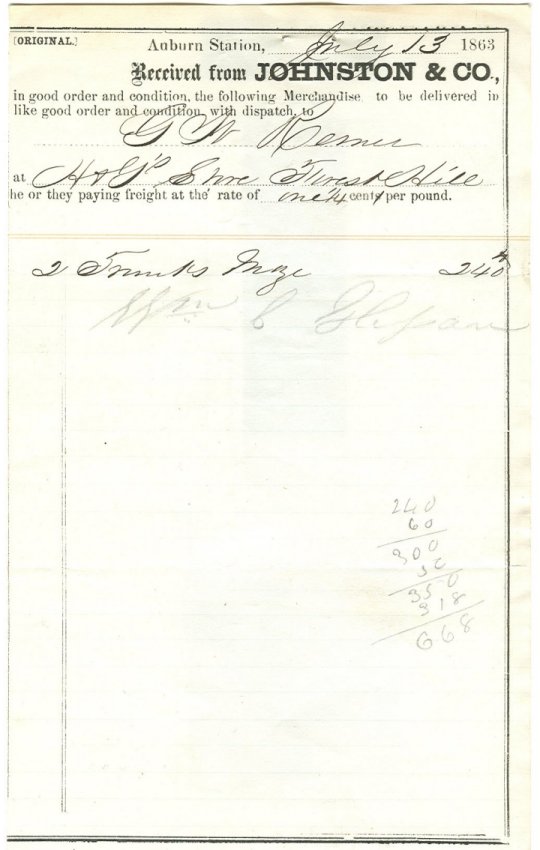 [ORIGINAL.]
Auburn Station, July 13 1863
Received from JOHNSTON & CO.,
in good order and condition, the following Merchandise to be delivered in
like good order and condition, with dispatch, to
G W
at Store Forest Hill
he or they paying freight at the rate of one 1/4 cents per pound.
2 Trunks Mdze 240
Wm C
240
60
300
50
350
318
668